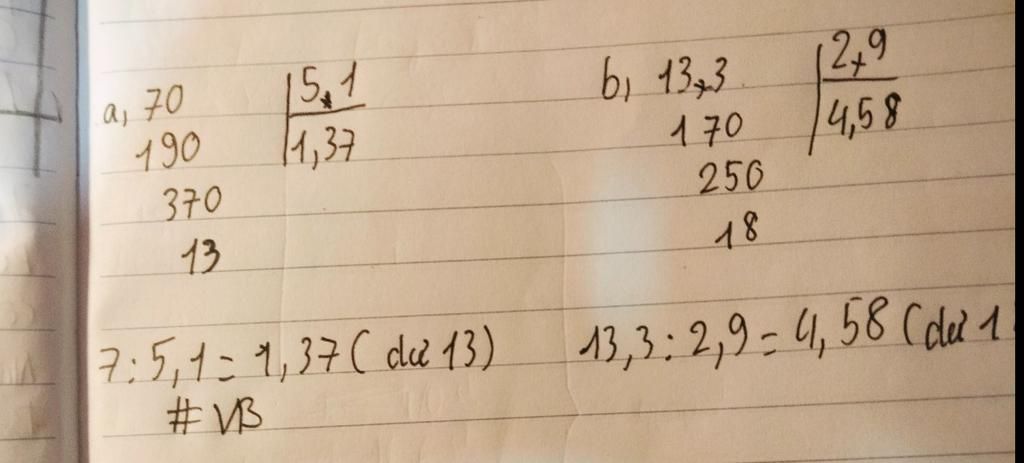 a, 70 5,1
190 1,37
370
13
b, 13,3 2,9
170 4,58
250
18
7 : 5,1 = 1,37 ( dư 13)
# VB
13,3 : 2,9 = 4,58 ( dư 1